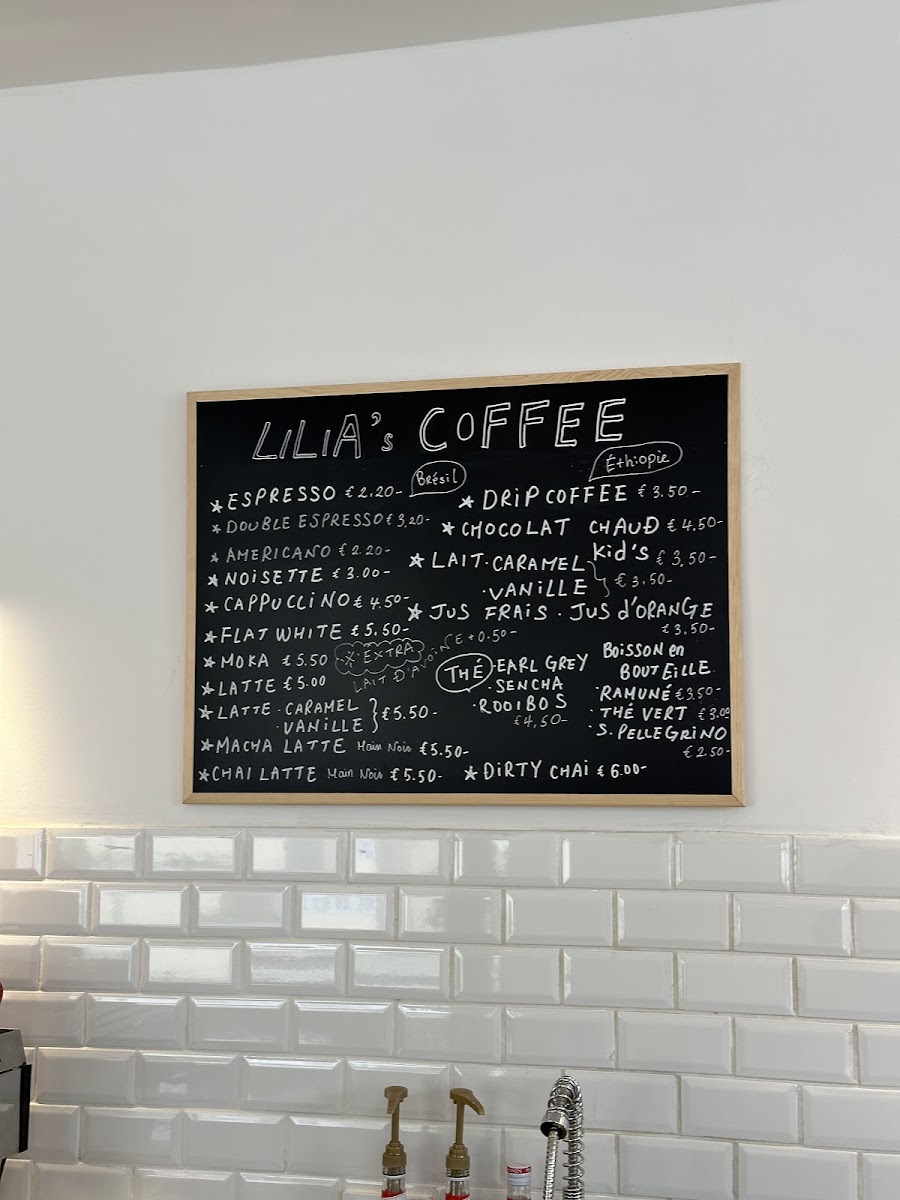 LILIA's COFFEE
Brésil
ESPRESSO € 2.20-
DOUBLE ESPRESSO € 3,20-
AMERICANO € 2.20-
NOISETTE € 3.00-
CAPPUCCINO € 4.50-
FLAT WHITE € 5.50-
MOKA € 5.50
EXTRA
LAIT D'AVOINE + 0.50-
LATTE € 5.00
LATTE · CARAMEL
· VANILLE } € 5.50-
MACHA LATTE Main Noir € 5.50-
CHAI LATTE Main Noir € 5.50-
Éthiopie
DRIP COFFEE € 3.50.-
CHOCOLAT CHAUD € 4.50-
Kid's € 3,50-
LAIT · CARAMEL
· VANILLE } € 3.50-
JUS FRAIS · JUS d'ORANGE
€ 3,50-
THÉ · EARL GREY
· SENCHA
· ROOIBOS
€ 4,50-
BOISSON en
BOUTEILLE
· RAMUNÉ € 3.50-
· THÉ VERT € 3.00
· S. PELLEGRINO
€ 2.50-
DIRTY CHAI € 6.00-